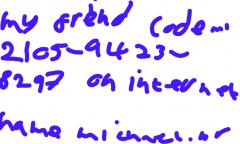 my friend code
2105-9423-
8297 on internet
name michael.